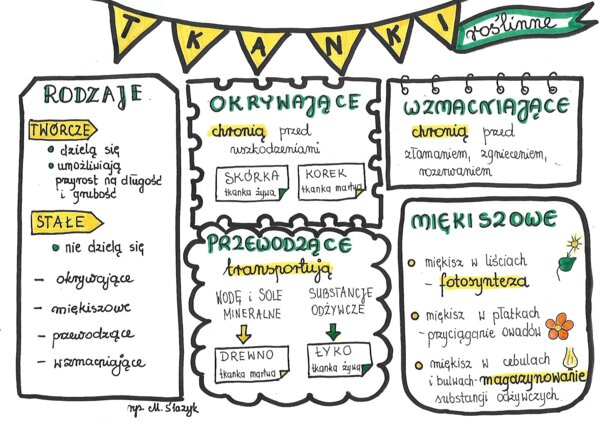 TKANKI
roślinne
RODZAJE
TWÓRCZE
dzielą się
umożliwiają
przyrost na długość
i grubość
STAŁE
nie dzielą się
– okrywające
– miękiszowe
– przewodzące
– wzmacniające
OKRYWAJĄCE
chronią przed
uszkodzeniami
SKÓRKA
tkanka żywa
KOREK
tkanka martwa
PRZEWODZĄCE
transportują
WODĘ i SOLE
MINERALNE
SUBSTANCJE
ODŻYWCZE
DREWNO
tkanka martwa
ŁYKO
tkanka żywa
WZMACNIAJĄCE
chronią przed
złamaniem, zgnieceniem,
rozerwaniem
MIĘKISZOWE
miękisz w liściach
– fotosynteza
miękisz w płatkach
– przyciąganie owadów
miękisz w cebulach
i bulwach – magazynowanie
substancji odżywczych
rys. M. Ślazyk